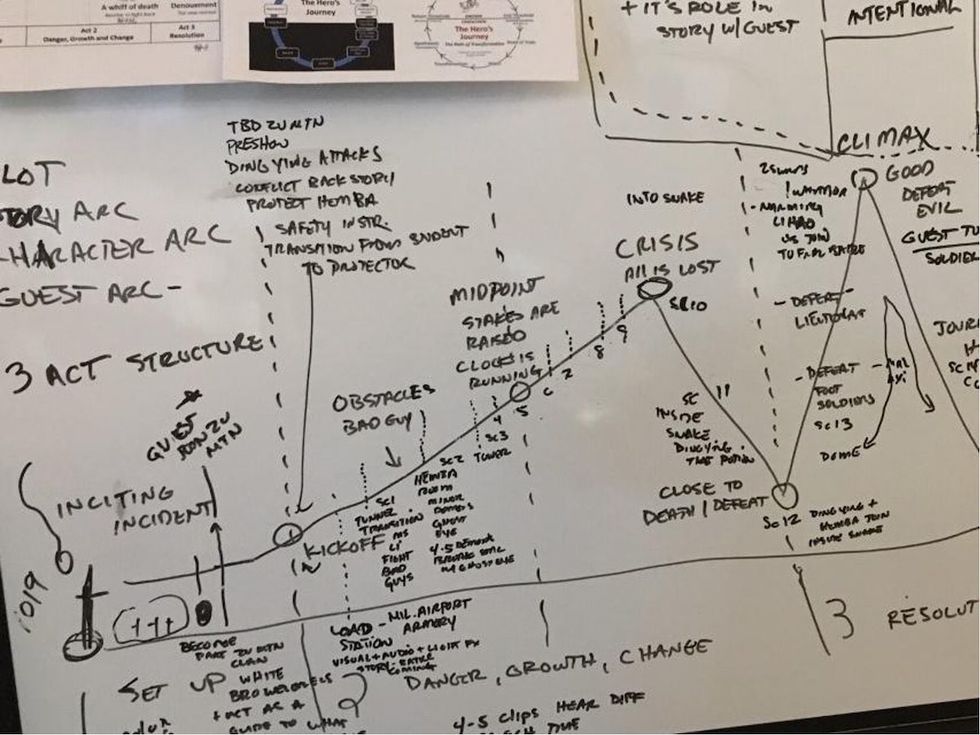 A whiff of death
Denouement
Act 2
Danger, Growth and Change
Act 3
Resolution
The Hero's
Journey
The Hero's
Journey
+ IT'S ROLE IN
STORY W/GUEST
INTENTIONAL
LOT
TORY ARC
CHARACTER ARC
GUEST ARC -
3 ACT STRUCTURE
TBD ZU MTN
PRESHOW
DINGYING ATTACKS
CONFLICT BACKSTORY
PROTECT HEMBA
SAFETY INSTR.
TRANSITION FROM STUDENT
TO PROTECTOR
GUEST
JOIN ZU
MTN
INCITING
INCIDENT
1019
KICKOFF
OBSTACLES
BAD GUY
MIDPOINT
STAKES ARE
RAISED
CLOCK IS
RUNNING
INTO SNAKE
CRISIS
All IS LOST
SC10
CLIMAX
GOOD
DEFEAT
EVIL
GUEST TU
SOLDIER
WARRIOR
US JOIN
- DEFEAT
LIEUTENANT
- DEFEAT
FOOT
SOLDIERS
SC13
DOME
JOUR
SC1
TUNNEL
TRANSITION
MS
LI
FIGHT
BAD
GUYS
SC2
HEMBA
ROOM
MINOR
DEMONS
GHOST
EYE
4-5 DEMONS
SC3
TOWER
4
5
6
7
8
9
SC 11
INSIDE
SNAKE
DINGYING
POTION
CLOSE TO
DEATH / DEFEAT
SC12
DINGYING +
HEMBA JOIN
INSIDE SNAKE
BECOME
PART ZU MTN
CLAN
SET UP
WHITE
+ ACT AS A
GUIDE TO WHAT
LOAD - MIL. AIRPORT
STATION ARMORY
VISUAL + AUDIO + LIGHT FX
COMING
2
DANGER, GROWTH, CHANGE
4-5 Clips HEAR DIFF
3 RESOLUT